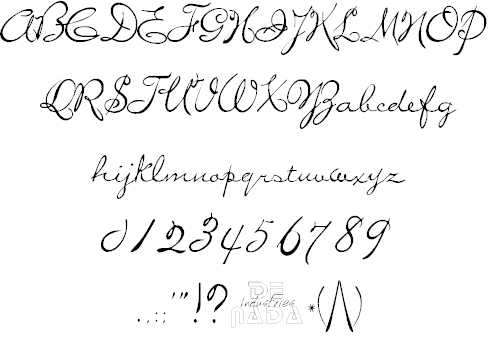 ABCDEFGHIJKLMNOP
QRSTUVWXYZabcdefg
hijklmnopqrstuvwxyz
0123456789
.,:;'"!? DE NADA Industries *(/\)